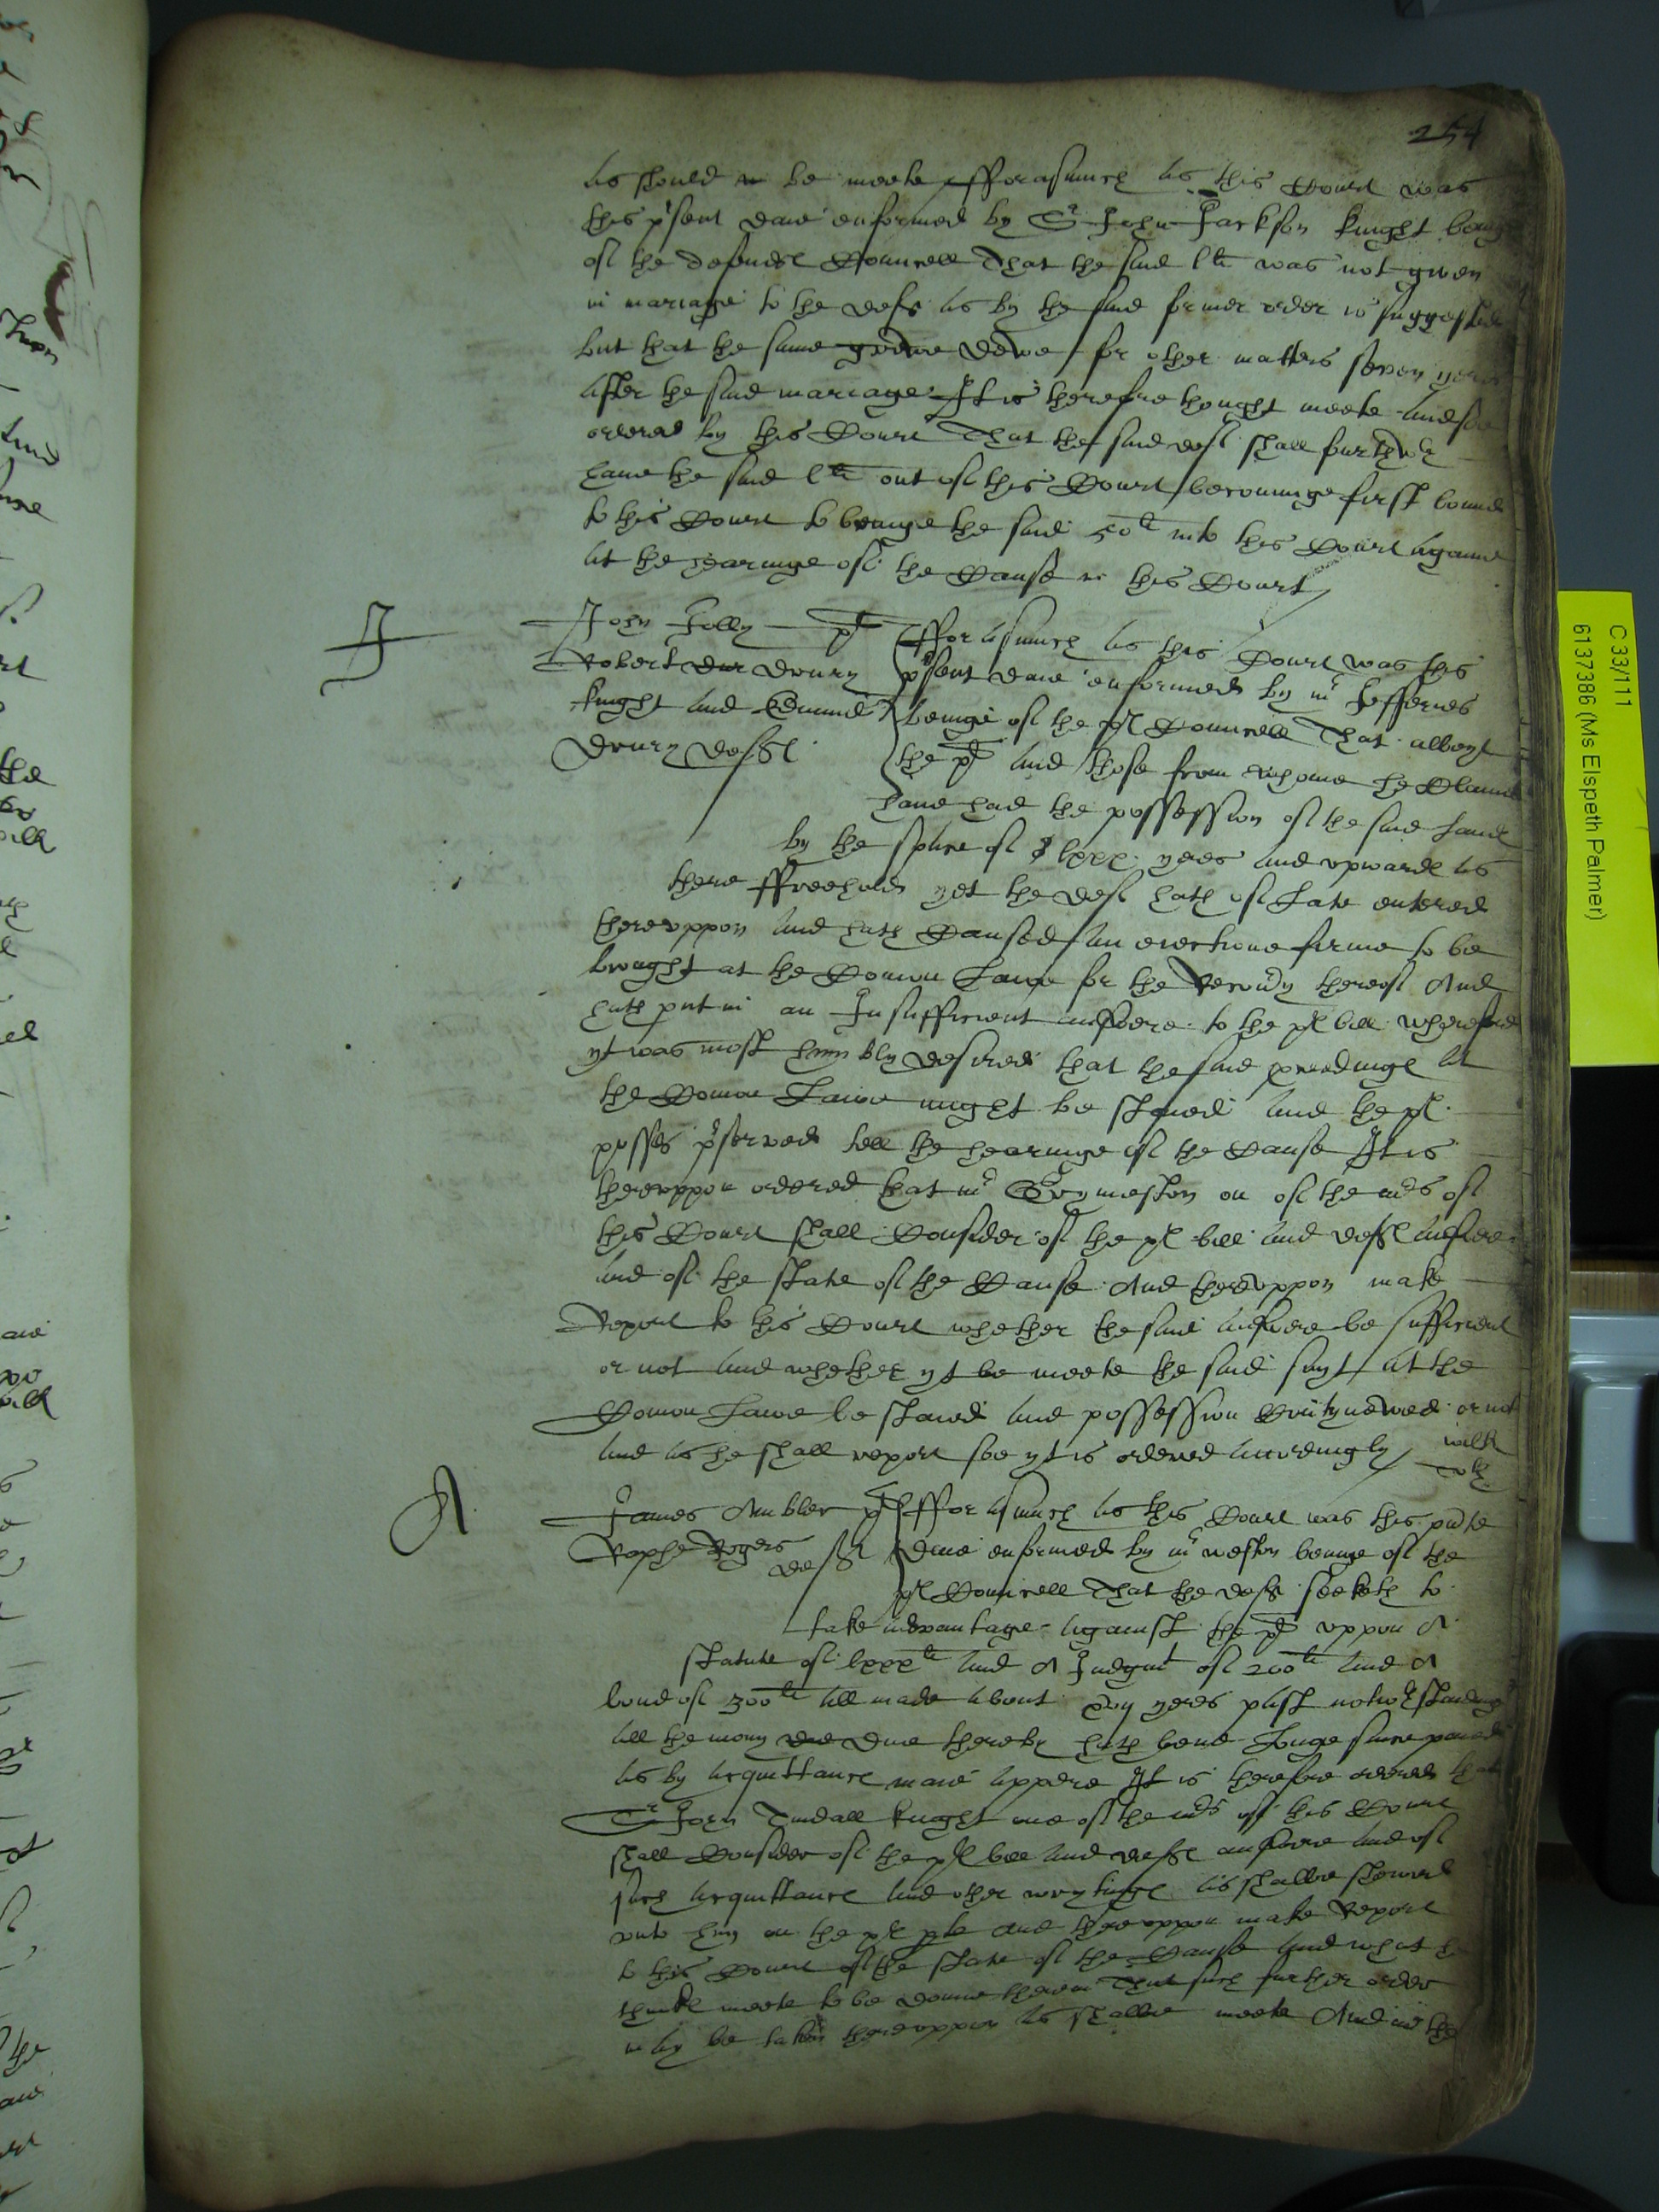 254
as should be meete Fforasmuch as this Court was
this p'sent daie enformed by Sr John Jackson knight being
of the defendts Councell That the said lli was not given
in mariage to the deft as by the said former order is suggested
but that the same growe dewe for other matters seven yeres
after the said mariage It is therefore thought meete and soe
ordered by this Court That the said deft shall furthwth
have the said lli out of this Court becominge first bound
to this Court to bringe the said 50li into this Court againe
at the hearinge of the Cause in this Court
J
John Jolly plt
Robert Drury
knight and Edmund
Drury defts
Fforasmuch as this Court was this
p'sent daie enformed by mr Jefferies
beinge of the pl Councell That albeyt
the plt and those from whome he Claimes
have had the possession of the said Lands
by the space of lxxx yeres and upwards as
there ffreehold yet the deft hath of late entered
thereuppon and hath Caused an eiectione firme to be
brought at the Comon Lawe for the Recovry thereof And
hath put in an Insufficient answere to the pl bill wherefore
yt was most humbly desired that the said pceedings at
the Comon Lawe might be stayed and the pl
posses p'served till the hearinge of the Cause It is
thereuppon ordered that mr Grymeston on of the mrs of
this Court shall Consider of the pl bill and defts answere
and of the state of the Cause And thereuppon make
Report to this Court whether the said answere be sufficient
or not and whether yt be meete the said suyt at the
Comon Lawe be staied and possession Contynewed or not
and as he shall report soe yt is ordered accordingly
A
James Ambler plt
Raphe Rogers
deft
Fforasmuch as this Court was this pnte
daie enformed by mr weston beinge of the
pl Councell That the deft seeketh to
take advantage against the plt uppon A
statute of lxxxli and A Judgmt of 200li and A
bond of 300li all made about yeres past notwthstandinge
all the mony due thereby hath bene Longe since paied
as by acquittance maie appere It is therefore ordered that
Sr John Tindall knight one of the mrs of this Court
shall Consider of the pl bill and defts answere and of
such acquittance and other wrytings as shalbe shewed
unto him on the pl pte and thereuppon make Report
to this Court of the state of the Cause and what he
thinks meete to be donne therein That such further order
may be taken thereuppon as shalbe meete And in the
C 33/111
6137386 (Ms Elspeth Palmer)